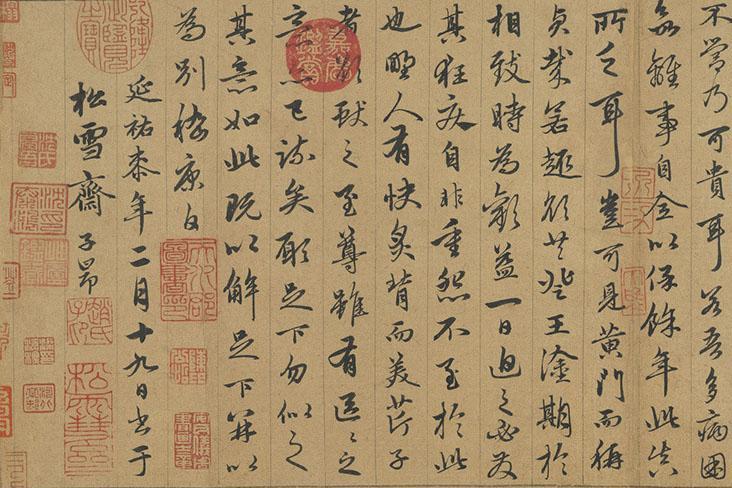 不營乃可貴耳若吾多病困
欲離事自全以保餘年此真
所乏耳豈可見黃門而稱
貞哉若趣欲共登王塗期於
相致時為歡益一旦迫之必發
其狂疾自非重怨不至於此
也野人有快炙背而美芹子
者欲獻之至尊雖有區〻之
意亦已疏矣願足下勿似之
其意如此既以解足下并以
為別嵇康白
延祐柒年二月十九日書于
松雪齋 子昂
嘉慶鑑賞